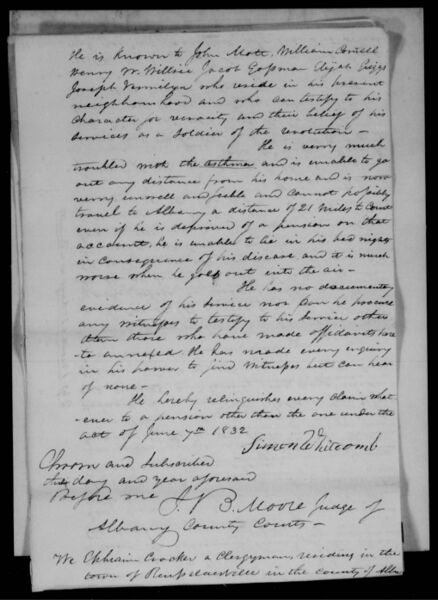 He is known to John Mott, William Cowell
Henry W. Willsie Jacob Gossman Elijah
Joseph Vermilya who reside in his present
neighbourhood and who can testify to his
character for veracity and their belief of his
services as a soldier of the revolution -
He is verry much
troubled with the asthma and is unable to go
out any distance from his home and is now
verry unwell and feeble and cannot possibly
travel to Albany a distance of 21 miles to Court
even if he is deprived of a pension on that
account, he is unable to lie in his bed nights
in consequence of his disease and it is much
worse when he goes out into the air -
He has no documentary
evidence of his service nor can he procure
any witnesses to testify to his service other
than those who have made affidavits here
to annexed. He has made every enquiry
in his power to find witnesses but can hear
of none -
He hereby relinquishes every claim what
ever to a pension other than the one under the
act of June 7th 1832
Simon Whitcomb
Sworn and Subscribed
the day and year aforesaid
Before me J. B. Moore Judge of
Albany County Courts -
We Ephraim Crocker a Clergyman residing in the
town of Rensselaerville in the county of Alba